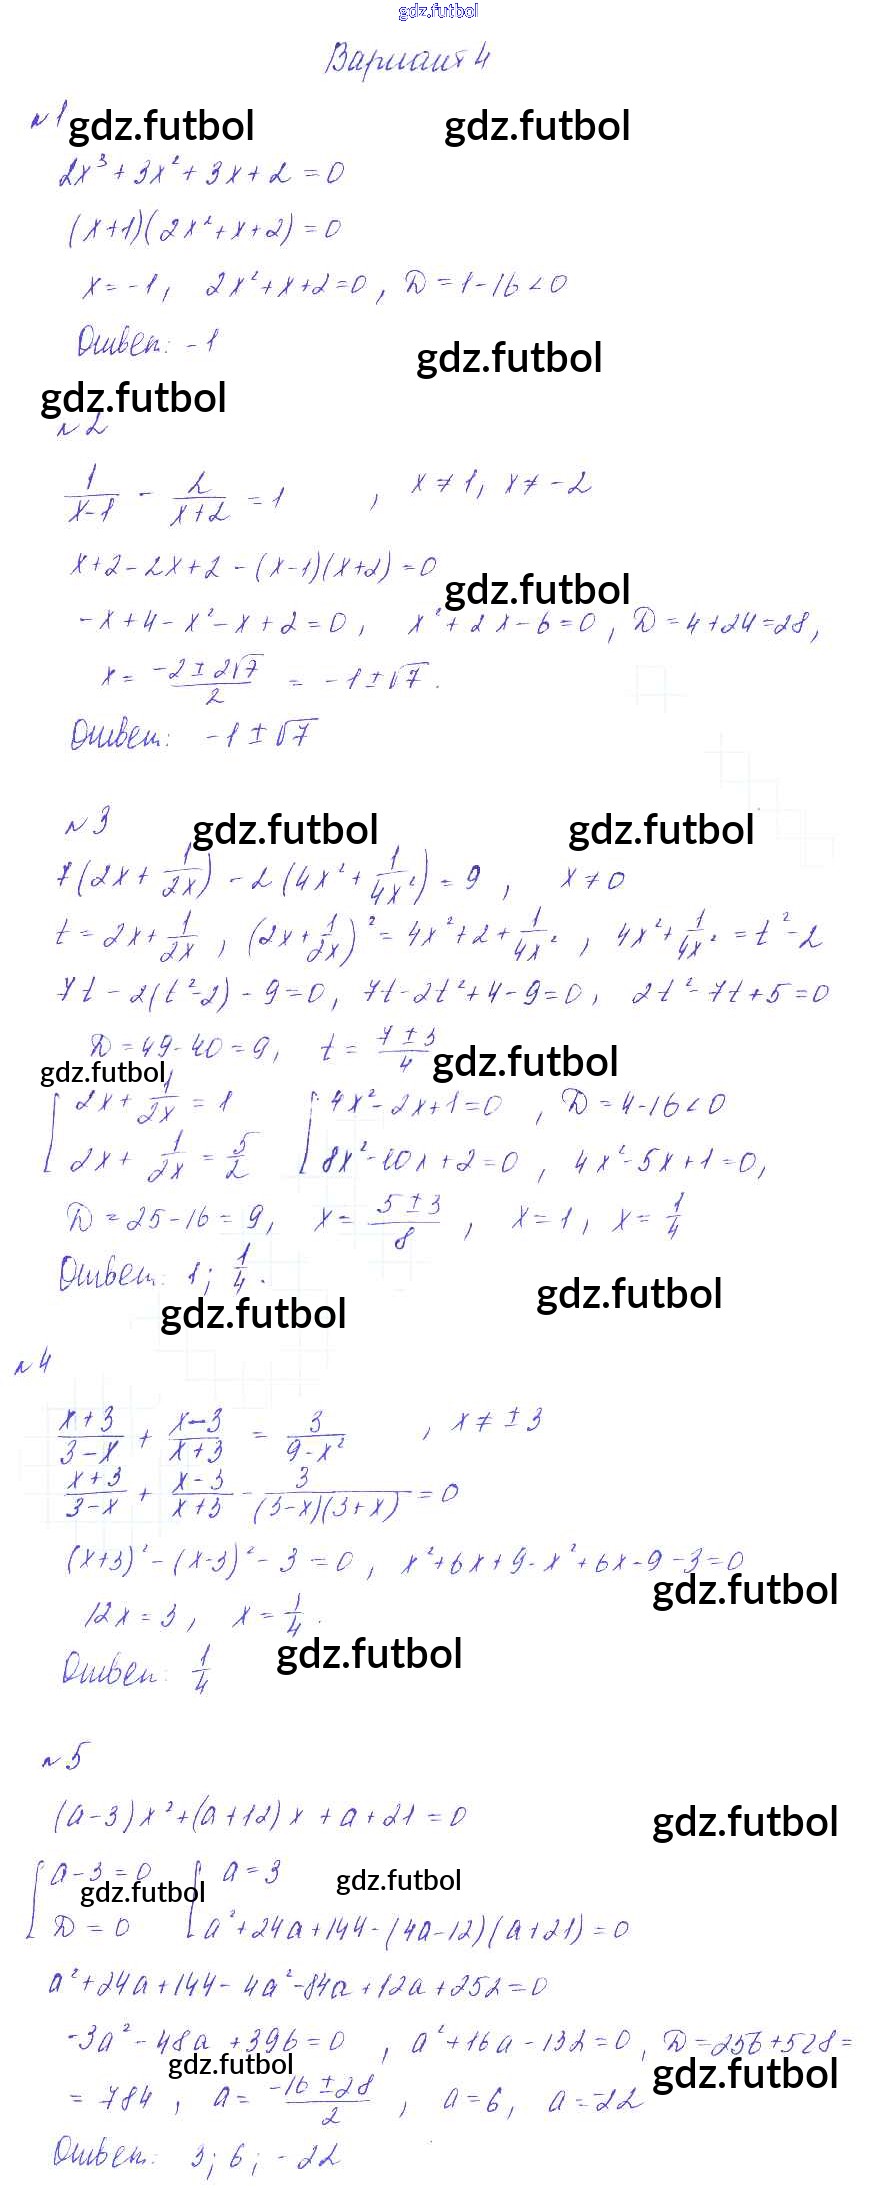 gdz.futbol
Вариант 4
№1
gdz.futbol gdz.futbol
2x³ + 3x² + 3x + 2 = 0
(x+1)(2x² + x + 2) = 0
x = -1, 2x² + x + 2 = 0, D = 1 - 16 < 0
Ответ: -1
gdz.futbol
gdz.futbol
№2
1/(x-1) - 2/(x+2) = 1, x ≠ 1, x ≠ -2
x + 2 - 2x + 2 - (x-1)(x+2) = 0
gdz.futbol
-x + 4 - x² - x + 2 = 0, x² + 2x - 6 = 0, D = 4 + 24 = 28,
x = (-2 ± 2√7)/2 = -1 ± √7.
Ответ: -1 ± √7
№3
gdz.futbol gdz.futbol
7(2x + 1/2x) - 2(4x² + 1/4x²) = 9, x ≠ 0
t = 2x + 1/2x, (2x + 1/2x)² = 4x² + 2 + 1/4x², 4x² + 1/4x² = t² - 2
7t - 2(t² - 2) - 9 = 0, 7t - 2t² + 4 - 9 = 0, 2t² - 7t + 5 = 0
D = 49 - 40 = 9, t = (7 ± 3)/4
gdz.futbol
gdz.futbol
[ 2x + 1/2x = 1 [ 4x² - 2x + 1 = 0, D = 4 - 16 < 0
2x + 1/2x = 5/2 8x² - 10x + 2 = 0, 4x² - 5x + 1 = 0,
D = 25 - 16 = 9, x = (5 ± 3)/8, x = 1, x = 1/4
Ответ: 1; 1/4.
gdz.futbol
gdz.futbol
№4
(x+3)/(3-x) + (x-3)/(x+3) = 3/(9-x²), x ≠ ±3
(x+3)/(3-x) + (x-3)/(x+3) - 3/((3-x)(3+x)) = 0
(x+3)² - (x-3)² - 3 = 0, x² + 6x + 9 - x² + 6x - 9 - 3 = 0
gdz.futbol
12x = 3, x = 1/4.
gdz.futbol
Ответ: 1/4
№5
(a-3)x² + (a+12)x + a + 21 = 0
gdz.futbol
[ a - 3 = 0 [ a = 3
gdz.futbol gdz.futbol
D = 0 a² + 24a + 144 - (4a - 12)(a + 21) = 0
a² + 24a + 144 - 4a² - 84a + 12a + 252 = 0
-3a² - 48a + 396 = 0, a² + 16a - 132 = 0, D = 256 + 528 =
gdz.futbol gdz.futbol
= 784, a = (-16 ± 28)/2, a = 6, a = -22
Ответ: 3; 6; -22